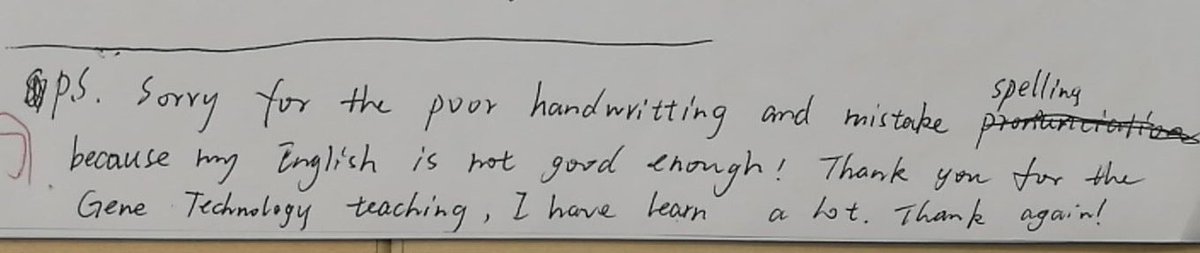 PS. Sorry for the poor handwritting and mistake spelling
because my English is not good enough! Thank you for the
Gene Technology teaching, I have learn a lot. Thank again!